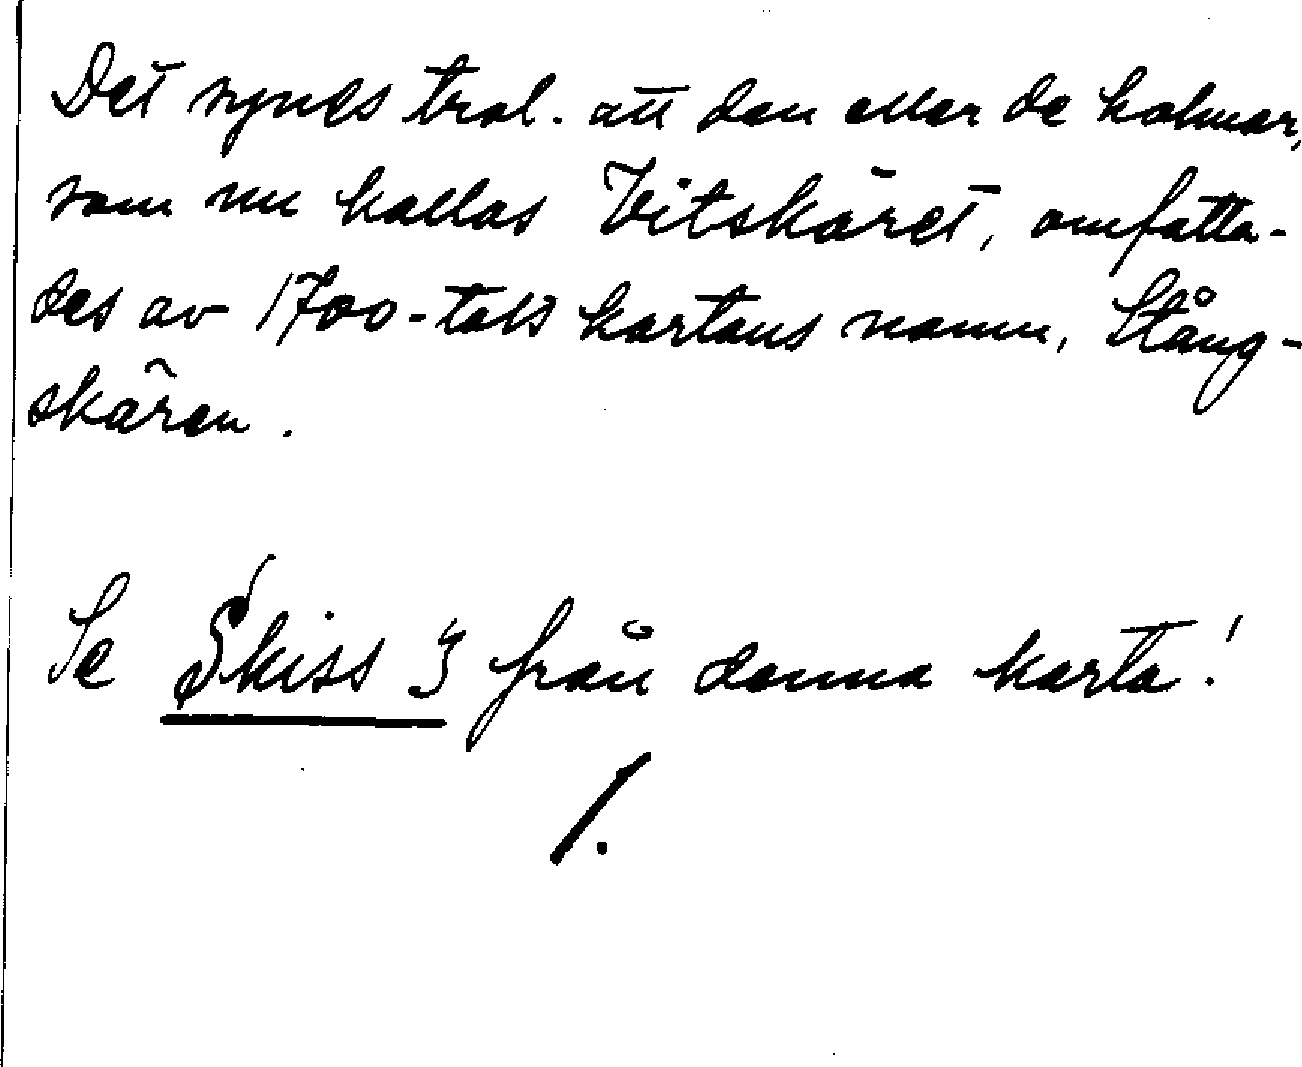 Det synes trol. att den eller de holmar,
som nu kallas Vitskäret, omfatta-
des av 1700-tals kartans namn, Stång-
skären.
Se Skiss 3 från denna karta!
/.